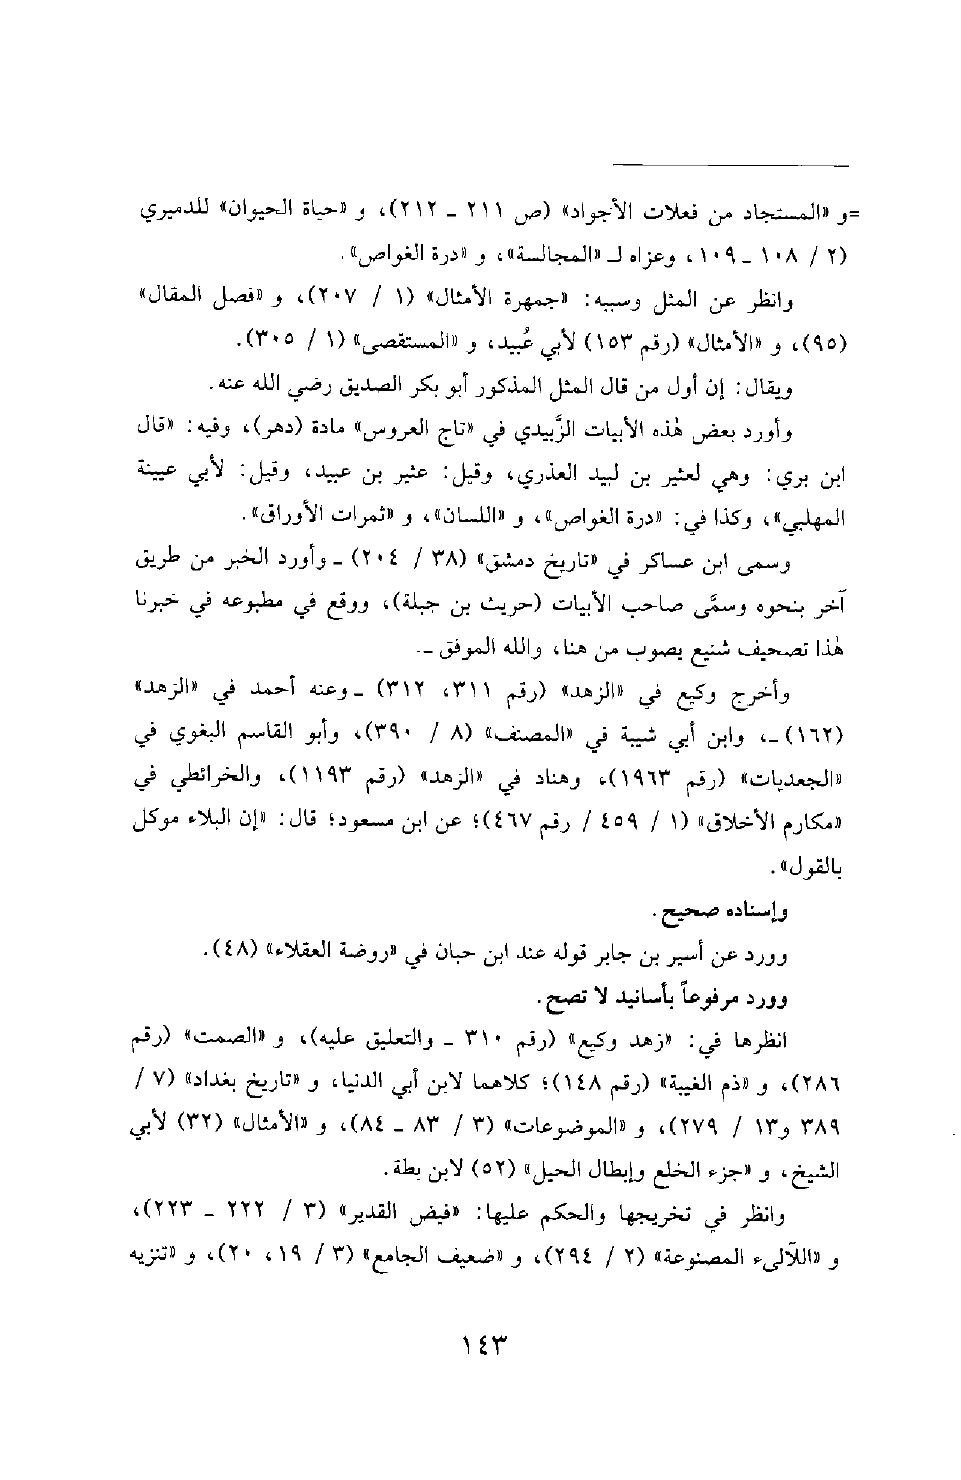 =و «المستجاد من فعلات الأجواد» (ص ٢١١ ـ ٢١٢)، و «حياة الحيوان» للدميري
(٢ / ١٠٨ ـ ١٠٩، وعزاه لـ «المجالسة»، و «درة الغواص».
وانظر عن المثل وسببه: «جمهرة الأمثال» (١ / ٢٠٧)، و «فصل المقال»
(٩٥)، و «الأمثال» (رقم ١٥٣) لأبي عُبيد، و «المستقصى» (١ / ٣٠٥).
ويقال: إن أول من قال المثل المذكور أبو بكر الصديق رضي الله عنه.
وأورد بعض هٰذه الأبيات الزَّبيدي في «تاج العروس» مادة (دهر)، وفيه: «قال
ابن بري: وهي لعثير بن لبيد العذري، وقيل: عثير بن عبيد، وقيل: لأبي عيينة
المهلبي»، وكذا في: «درة الغواص»، و «اللسان»، و «ثمرات الأوراق».
وسمى ابن عساكر في «تاريخ دمشق» (٣٨ / ٢٠٤) ـ وأورد الخبر من طريق
آخر بنحوه وسمَّى صاحب الأبيات (حريث بن جبلة)، ووقع في مطبوعه في خبرنا
هٰذا تصحيف شنيع يصوب من هنا، والله الموفق ـ.
وأخرج وكيع في «الزهد» (رقم ٣١١، ٣١٢) ـ وعنه أحمد في «الزهد»
(١٦٢) ـ، وابن أبي شيبة في «المصنف» (٨ / ٣٩٠)، وأبو القاسم البغوي في
«الجعديات» (رقم ١٩٦٣)، وهناد في «الزهد» (رقم ١١٩٣)، والخرائطي في
«مكارم الأخلاق» (١ / ٤٥٩ / رقم ٤٦٧)؛ عن ابن مسعود؛ قال: «إن البلاء موكل
بالقول».
وإسناده صحيح.
وورد عن أسير بن جابر قوله عند ابن حبان في «روضة العقلاء» (٤٨).
وورد مرفوعاً بأسانيد لا تصح.
انظرها في: «زهد وكيع» (رقم ٣١٠ ـ والتعليق عليه)، و «الصمت» (رقم
٢٨٦)، و «ذم الغيبة» (رقم ١٤٨)؛ كلاهما لابن أبي الدنيا، و «تاريخ بغداد» (٧ /
٣٨٩ و١٣ / ٢٧٩)، و «الموضوعات» (٣ / ٨٣ ـ ٨٤)، و «الأمثال» (٣٢) لأبي
الشيخ، و «جزء الخلع وإبطال الحيل» (٥٢) لابن بطة.
وانظر في تخريجها والحكم عليها: «فيض القدير» (٣ / ٢٢٢ ـ ٢٢٣)،
و «اللآلىء المصنوعة» (٢ / ٢٩٤)، و «ضعيف الجامع» (٣ / ١٩، ٢٠)، و «تنزيه
١٤٣